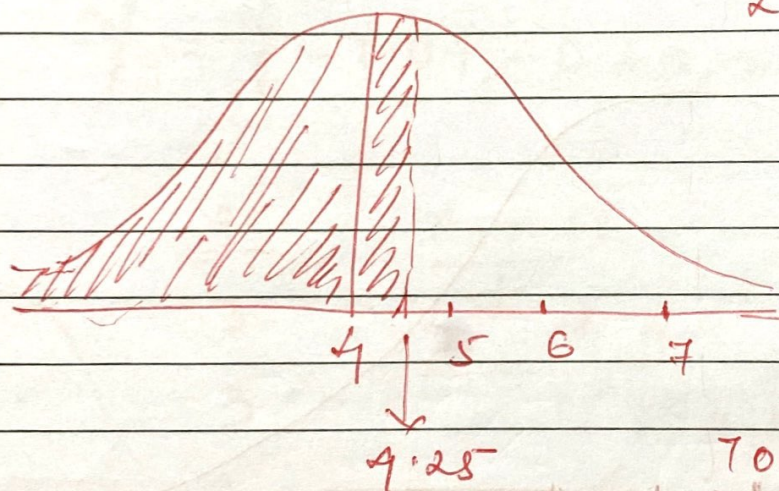 4 5 6 7
4.25
70